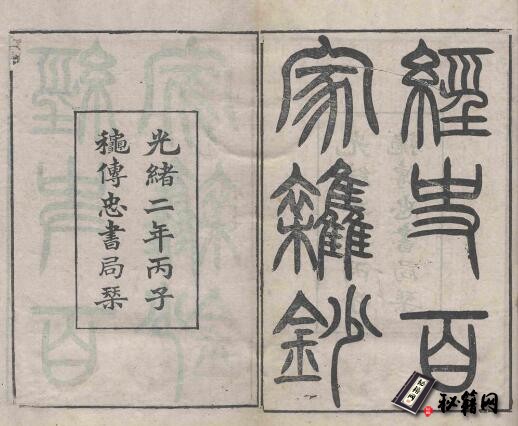 經史百
家雜鈔
光緒二年丙子
穐傳忠書局栞
秘籍网